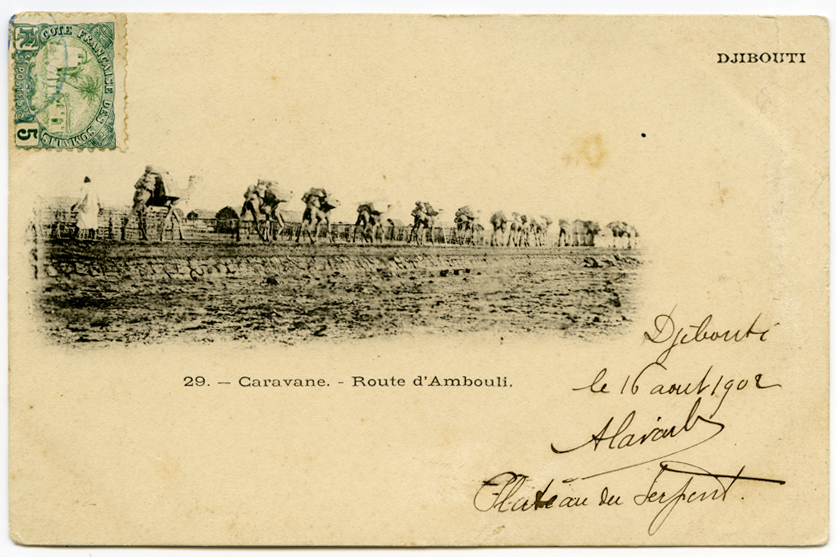 DJIBOUTI
5
CÔTE FRANÇAISE DES SOMALIS
POSTES
29. — Caravane. - Route d'Ambouli.
Djibouti
le 16 aout 1902
Plateau du Serpent.